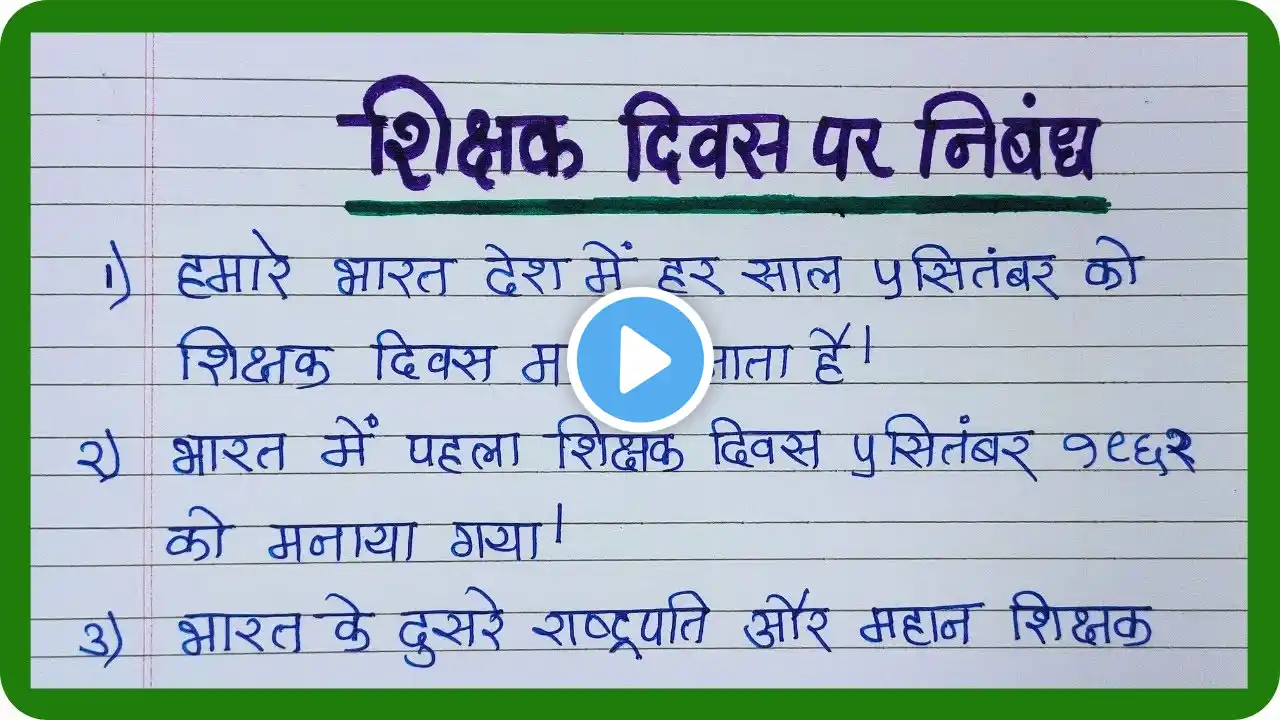 शिक्षक दिवस पर निबंध
१) हमारे भारत देश में हर साल ५ सितंबर को
शिक्षक दिवस है।
२) भारत में पहला शिक्षक दिवस ५ सितंबर १९६२
को मनाया गया।
३) भारत के दुसरे राष्ट्रपति और महान शिक्षक